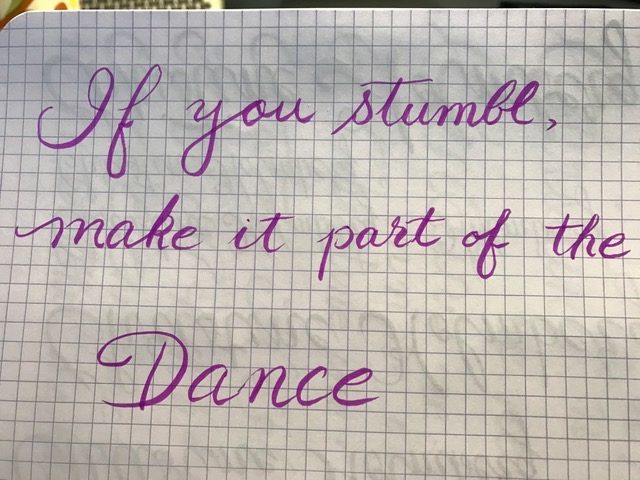 If you stumbl,
make it part of the
Dance